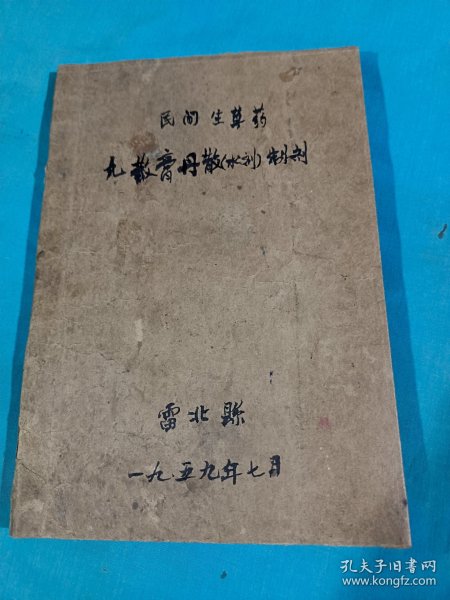 民间生草药
丸散膏丹散(水剂)制剂
雷北縣
一九五九年七月
孔夫子旧书网
www.kongfz.com